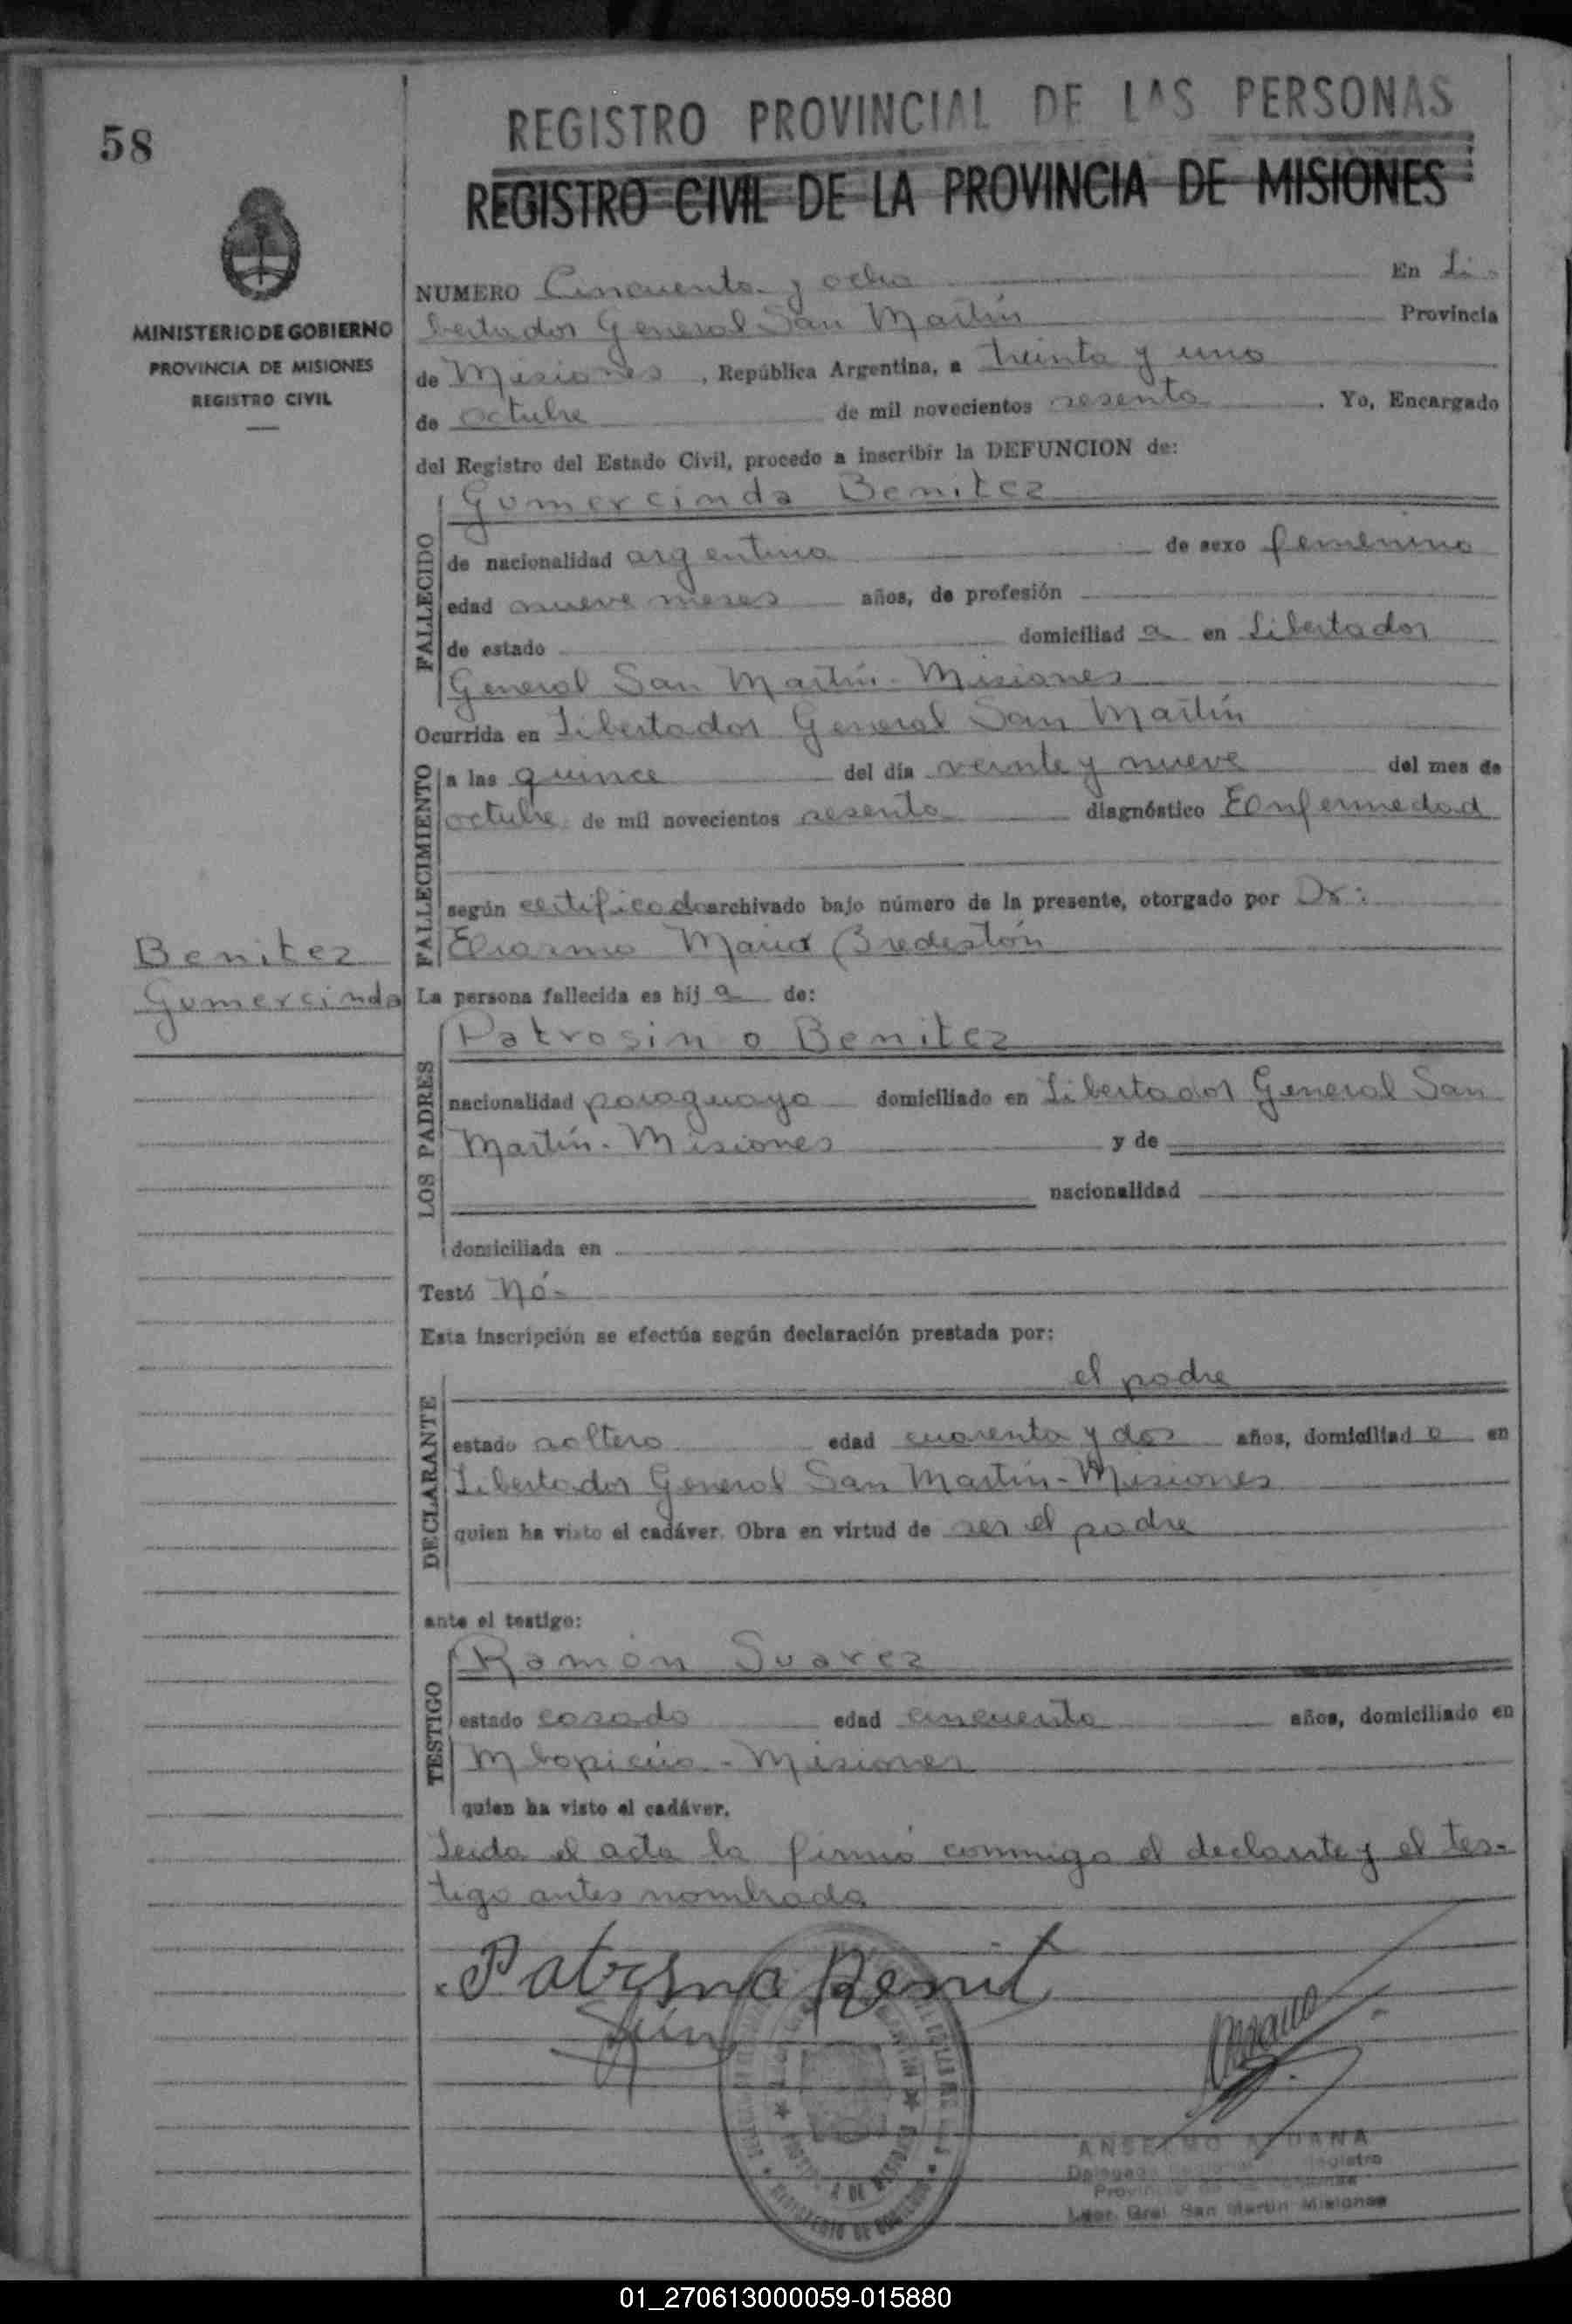 58
REGISTRO PROVINCIAL DE LAS PERSONAS
REGISTRO CIVIL DE LA PROVINCIA DE MISIONES
MINISTERIO DE GOBIERNO
PROVINCIA DE MISIONES
REGISTRO CIVIL
NUMERO Cincuenta y ocho En Li-
bertador General San Martín Provincia
de Misiones, República Argentina, a treinta y uno
de octubre de mil novecientos sesenta. Yo, Encargado
del Registro del Estado Civil, procedo a inscribir la DEFUNCION de:
Gumercinda Benitez
FALLECIDO
de nacionalidad argentina de sexo femenino
edad nueve meses años, de profesión
de estado domiciliad a en Libertador
General San Martín - Misiones
Ocurrida en Libertador General San Martín
FALLECIMIENTO
a las quince del día veinte y nueve del mes de
octubre de mil novecientos sesenta diagnóstico Enfermedad
según certificado archivado bajo número de la presente, otorgado por Dr:
Mario
Benitez
Gumercinda
La persona fallecida es hij a de:
Patrosin o Benitez
LOS PADRES
nacionalidad paraguayo domiciliado en Libertador General San
Martín - Misiones y de
nacionalidad
domiciliada en
Testó Nó-
Esta inscripción se efectúa según declaración prestada por:
el padre
DECLARANTE
estado soltero edad cuarenta y dos años, domiciliad o en
Libertador General San Martín - Misiones
quien ha visto el cadáver. Obra en virtud de ser el padre
ante el testigo:
Ramón Suarez
TESTIGO
estado casado edad cincuenta años, domiciliado en
Mbopicúa - Misiones
quien ha visto el cadáver.
Leida el acta la firmó conmigo el declante y el tes-
tigo antes nombrado
ANSELMO
Lber. Gral San Martin Misiones
01_270613000059-015880